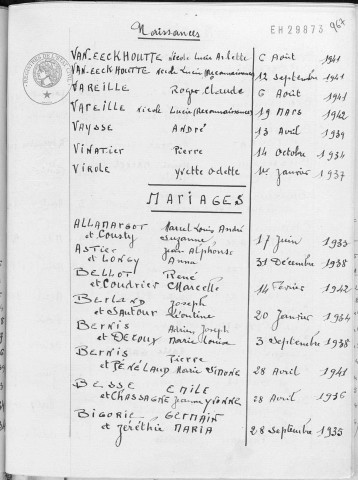 Naissances
EH29873
967
VAN-EECKHOUTTE Nicole Lucie Arlette 6 Août 1941
VAN-EECKHOUTTE Nicole Lucie (Reconnaissance) 12 septembre 1941
VAREILLE Roger Claude 6 Août 1941
VAREILLE Nicole Lucie (Reconnaissance) 19 MARS 1942
VAYSSE ANDRÉ 13 Avril 1939
VINATIER Pierre 14 octobre 1934
VIROLE Yvette Odette 1er janvier 1937
MARIAGES
ALLAMARGOT Marcel Louis André
et Cousty Suzanne 17 Juin 1933
ASTIER Jean Alphonse
et LONGY Anna 31 Décembre 1938
BELLOT René
et Coudrier Marcelle 14 Février 1942
BERLAND Joseph
et Sautour Léontine 20 Janvier 1934
BERNIS Adrien Joseph
et DECOUX Marie Louise 3 septembre 1938
BERNIS Pierre
et PÉNÉLAUD Marie SIMONE 28 Avril 1941
BESSE EMILE
et CHASSAGNE Jeanne YVONNE 28 Avril 1936
BIGORIE GERMAIN
et MARIA 28 septembre 1935